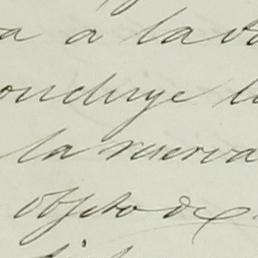 a á la vo
oncluye l
la reserva
objeto de